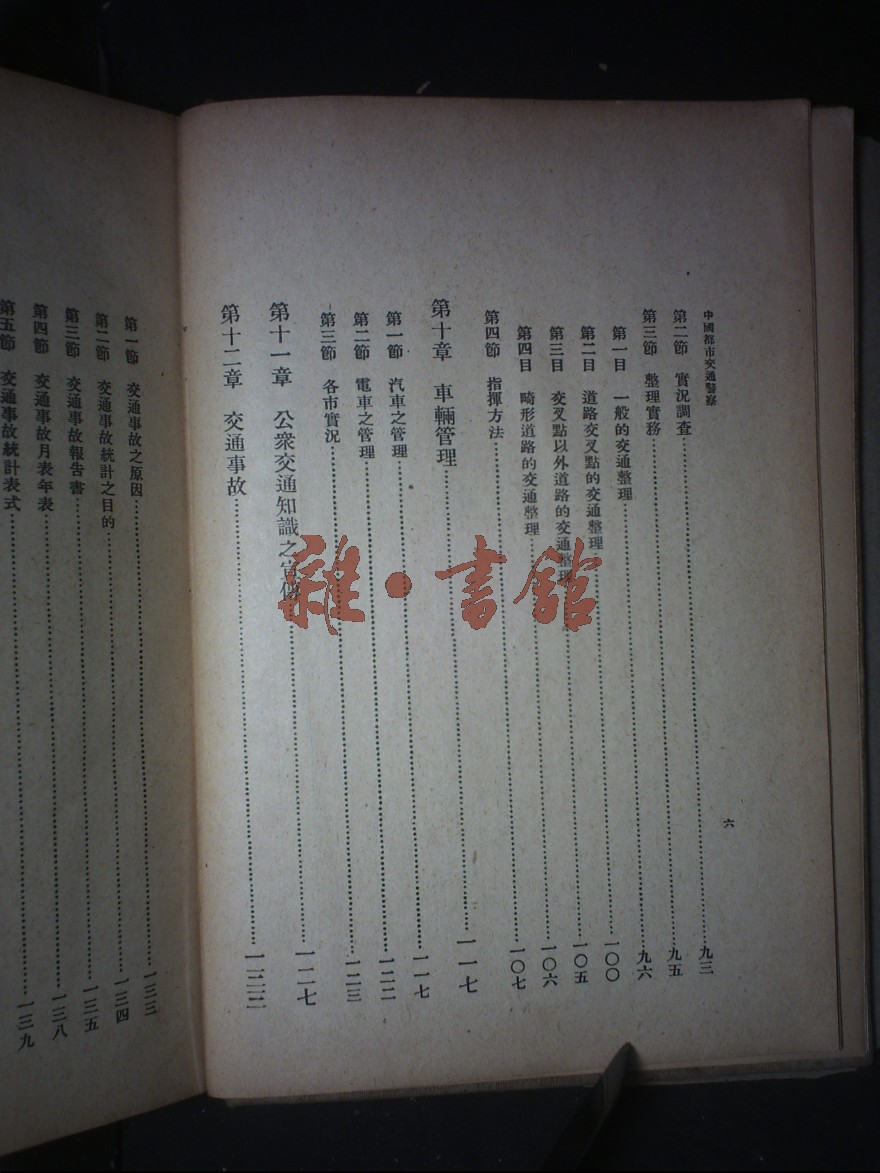 中國都市交通警察
六
第二節 實況調查……九三
第三節 整理實務……九五
第一目 一般的交通整理……九六
第二目 道路交叉點的交通整理……一〇〇
第三目 交叉點以外道路的交通整理……一〇五
第四目 畸形道路的交通整理……一〇六
第四節 指揮方法……一〇七
第十章 車輛管理……一一七
第一節 汽車之管理……一一七
第二節 電車之管理……一二二
第三節 各市實況……一二三
第十一章 公衆交通知識之宣傳……一二七
第十二章 交通事故……一三三
第一節 交通事故之原因……一三三
第二節 交通事故統計之目的……一三四
第三節 交通事故報告書……一三五
第四節 交通事故月表年表……一三八
第五節 交通事故統計表式……一三九
雜·書館